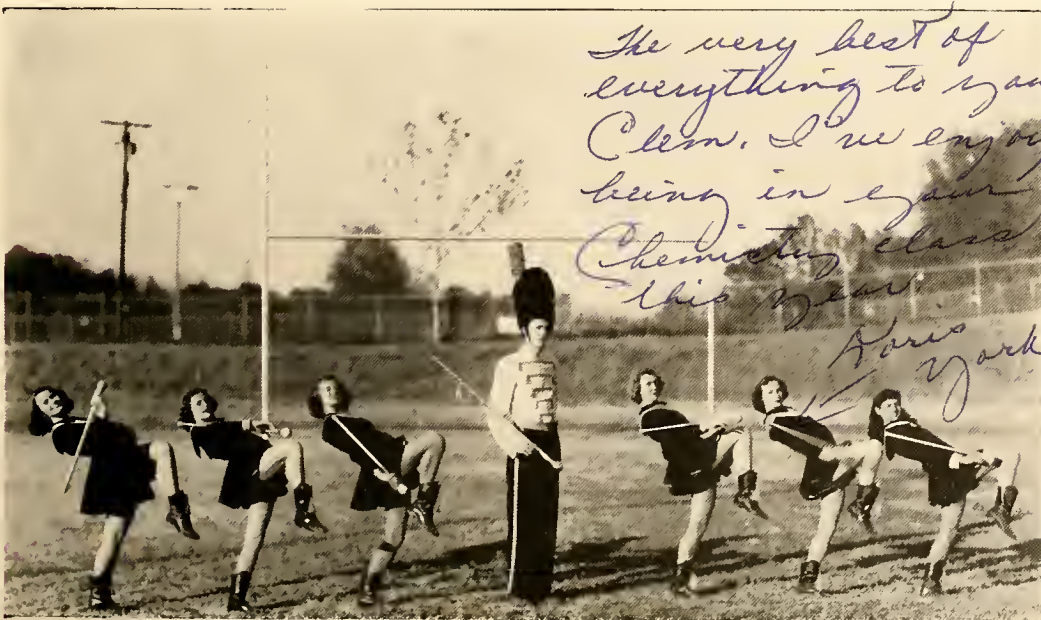 The very best of
everything to you
Clem. I've enjoy
being in your
Chemistry class
this year.
Doris
York